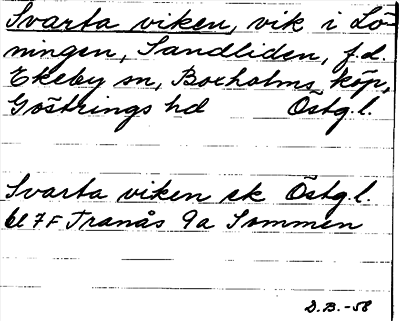 Svarta viken, vik i Lö-
ningen, Sandliden, f.d.
Ekeby sn, Boxholms köp,
Göstrings hd Östg.l.
Svarta viken ek Östg.l.
bl 7F Tranås 9a Sommen
D.B.-58